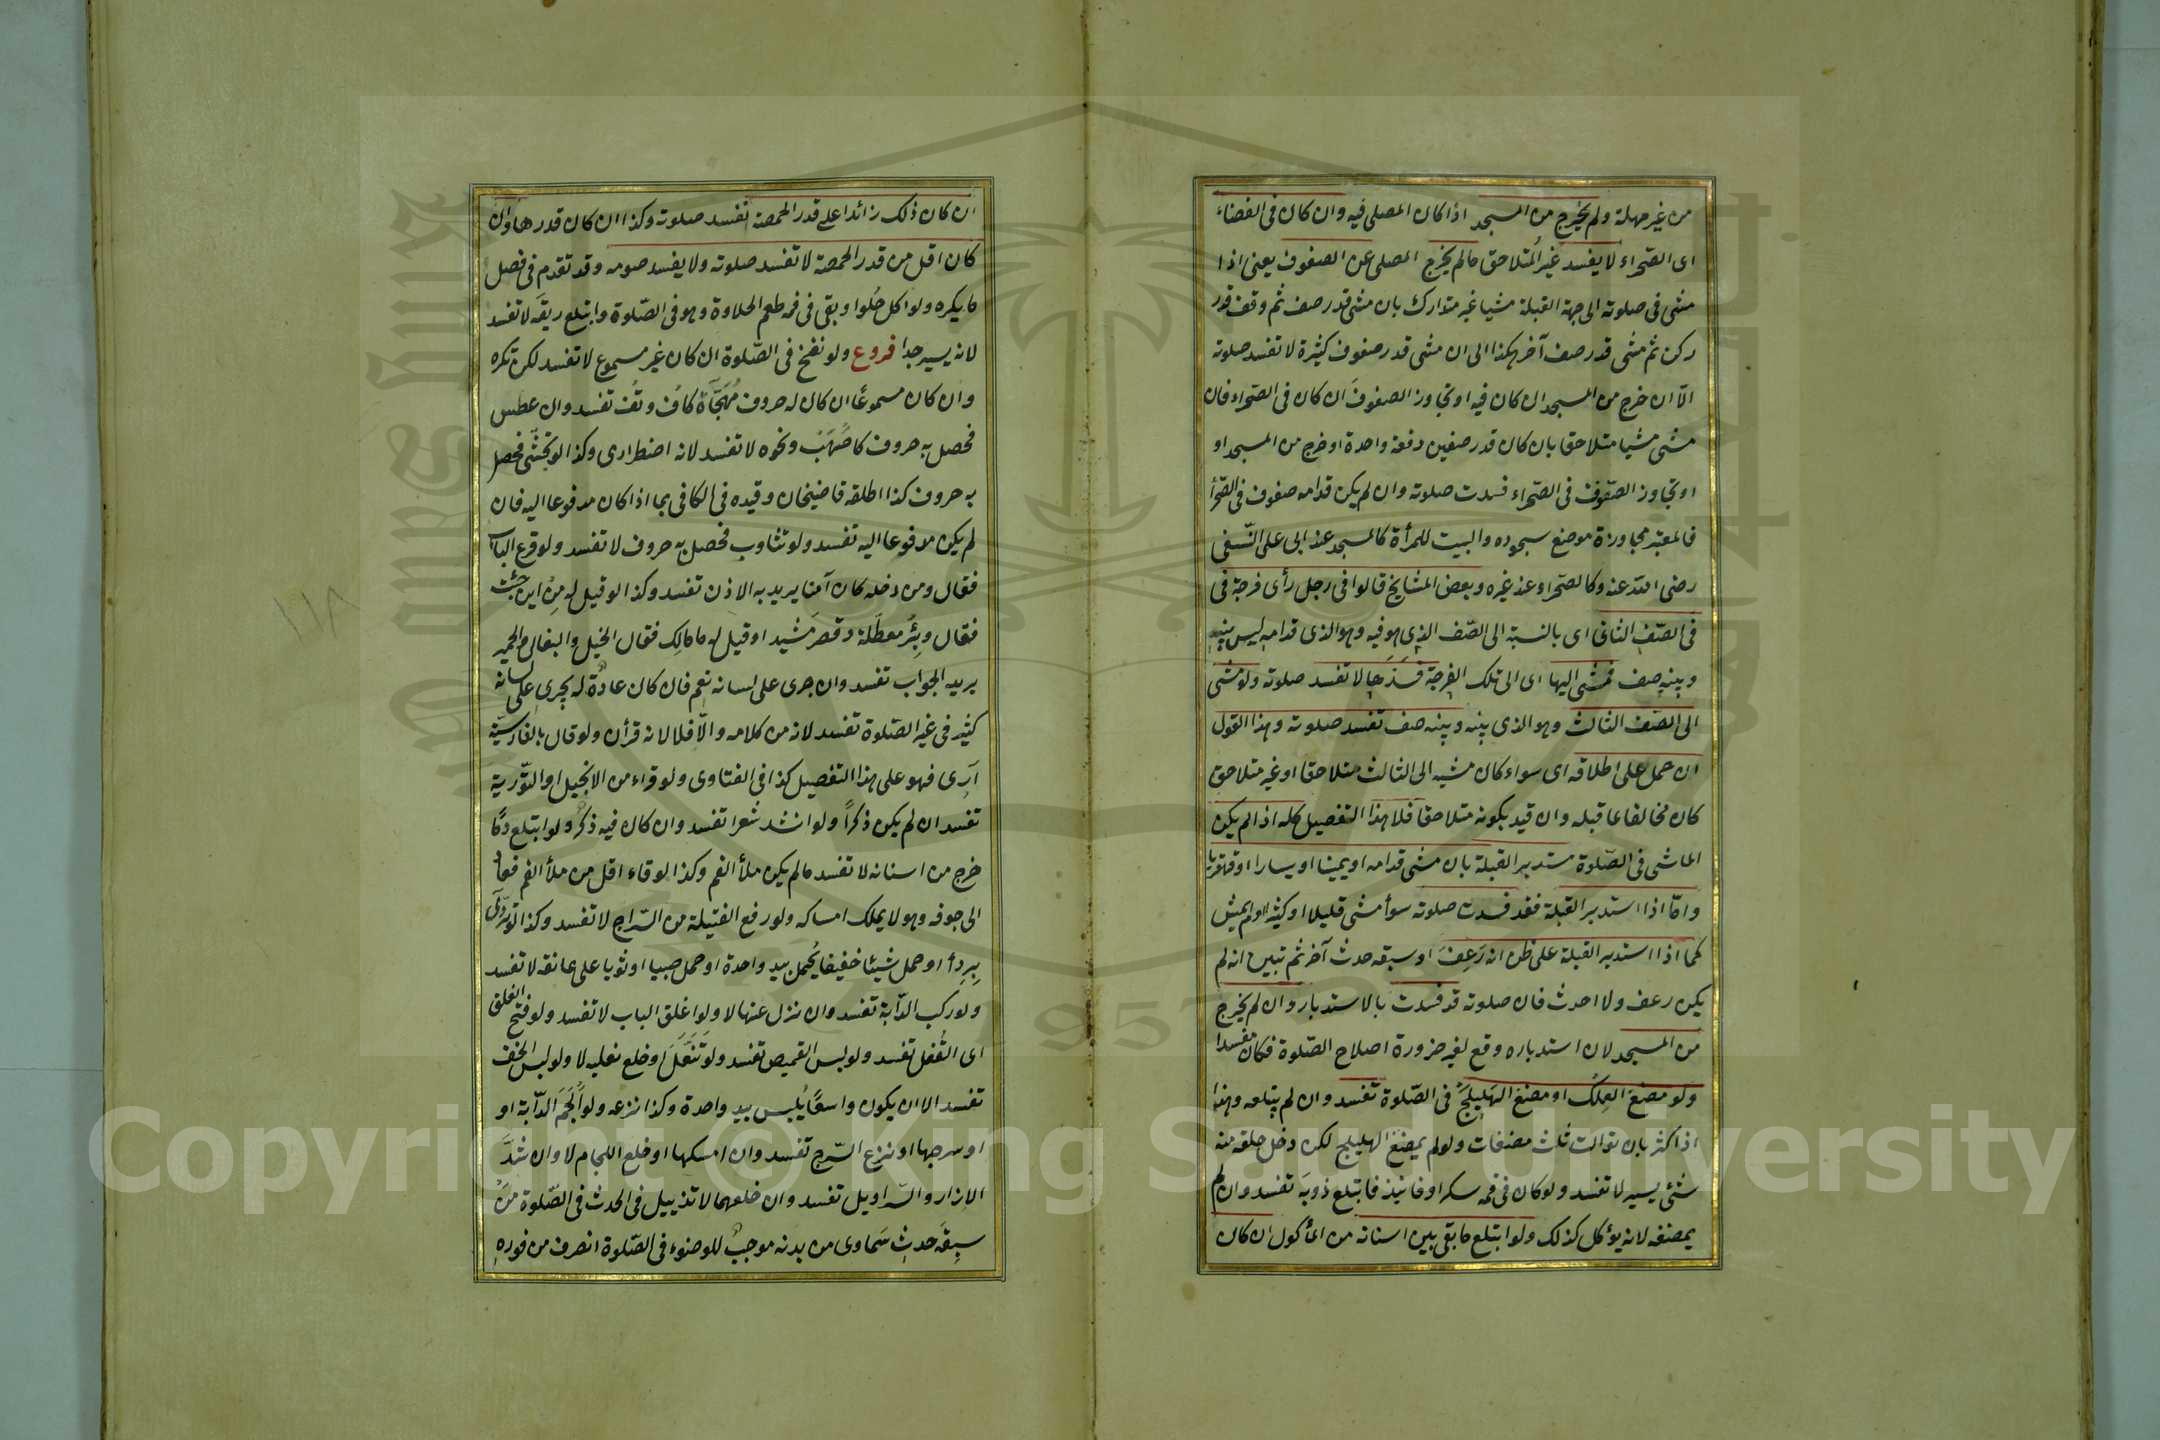 من غير مهلة ولم يخرج من المسجد اذا كان المصلى فيه وان كان فى الفضاء
اى الصحراء لا يفسد غير المتلاحق مالم يخرج المصلى عن الصفوف يعنى اذا
مشى فى صلوته الى جهة القبلة مشيا غير متدارك بان مشى قدر صف ثم وقف قدر
ركن ثم مشى قدر صف آخر هكذا الى ان مشى قدر صفوف كثيرة لا تفسد صلوته
الّا ان خرج من المسجد ان كان فيه او تجاوز الصفوفَ ان كان فى الصّحراء فان
مشى مشيا متلاحقا بان كان قدر صفين دفعة واحدة او خرج من المسجد او
او تجاوز الصّفوف فى الصّحراء فسدت صلوته وان لم يكن قدامه صفوف فى الصّحرأ
فالمعتبر مجاوزة موضع سجوده والبيت للمرأة كالمسجد عند ابى على النّسفى
رضى الله عنه وكالصّحراء عند غيره وبعض المشايخ قالوا فى رجل رأى فرجة فى
فى الصّف الثانى اى بالنسبة الى الصّف الذى هو فيه وهو الذى قدامه ليس بينه
وبينه صف فمشى اليها اى الى تلك الفرجة فسدّها لا تفسد صلوته ولو مشى
الى الصّف الثالث وهو الذى بينه وبينه صف تفسد صلوته وهذا القول
ان حمل على اطلاقه اى سواء كان مشيه الى الثالث متلاحقا او غير متلاحق
كان مخالفا لما قبله وان قيد بكونه متلاحقا فلا هذا التفصيل كله اذا لم يكن
الماشى فى الصّلوة مستدبر القبلة بان مشى قدامه او يمينا او يسارا او قهقريا
وامّا اذا استدبر القبلة فقد فسدت صلوته سوأ مشى قليلا او كثيرا او لم يمش
كما اذا استدبر القبلة على ظن انه رَعِفَ او سبقه حدث آخر ثم تبين انه لم
يكن رعف ولا احدث فان صلوته قد فسدت بالاستدبار وان لم يخرج
من المسجد لان استدباره وقع لغير ضرورة اصلاح الصّلوة فكان مفسدا
ولو مضغ العِلك او مضغ الهَلِيلَج فى الصّلوة تفسد وان لم يبتلعه وهذا
اذا كثر بان توالت ثلث مضغات ولو لم يمضغ الهليلج لكن دخل حلقه منه
شئ يسير لا تفسد ولو كان فى فمه سكر او فانيذ فابتلع ذوبَه تفسد وان لم
يمضغه لانه يؤكل كذلك ولو ابتلع ما بقى بين اسنانه من المأكول ان كان
ان كان ذلك زائدا على قدر الحمصة تفسد صلوته وكذا ان كان قدرها وان
كان اقل من قدر الحمصة لا تفسد صلوته ولا يفسد صومه وقد تقدم فى فصل
ما يكره ولو اكل حُلوا وبقى فى فمه طعم الحلاوة وهو فى الصّلوة وابتلع ريقَه لا تفسد
لانه يسير جدا فروع ولو نفخ فى الصّلوة ان كان غير مسموع لا تفسد لكن تكره
وان كان مسموعًا ان كان له حروف مُهَجَّاة كاُف وتُف تفسد وان عطس
فحصل به حروف كاصْهَبْ ونحوه لا تفسد لانه اضطرارى وكذا لو تجشّى فحصل
به حروف كذا اطلقه قاضيخان وقيده فى الكافى بما اذا كان مدفوعا اليه فان
لم يكن مدفوعا اليه تفسد ولو تثاوب فحصل به حروف لا تفسد ولو قرع الباب
فقال ومن دخله كان آمنا يريد به الاذن تفسد وكذا لو قيل له مِن اين جئت
فقال وبئر معطلة وقصر مشيد او قيل له ما مالك فقال الخيل والبغال والحمير
يريد الجواب تفسد وان جرى على لسانه نعم فان كان عادةً له يجرى على لسانه
كثير فى غير الصّلوة تفسد لانه من كلامه والّا فلا لانه قرأن ولو قال بالفارسيّة
آرى فهو على هذا التفصيل كذا فى الفتاوى ولو قراء من الانجيل او التّورية
تفسد ان لم يكن ذكراً ولو انشد شعرا تفسد وان كان فيه ذكر ولو ابتلع دمًا
خرج من اسنانه لا تفسد مالم يكن ملأ الفم وكذا لو قاء اقل من ملأ الفم فعاد
الى جوفه وهو لا يملك امساكه ولو رفع الفتيلة من السّراج لا تفسد وكذا لو تردّى
بردأ او حمل شيئا خفيفا يُحمل بيد واحدة او حمل صبيا او ثوبا على عاتقه لا تفسد
ولو ركب الدّابة تفسد وان نزل عنها لا ولو اغلق الباب لا تفسد ولو فتح الغلق
اى القُفل تفسد ولو لبس القميص تفسد ولو تَنَعَّلَ او خلع نعليه لا ولو لبس الخف
تفسد الا ان يكون واسعًا يُلبس بيد واحدة وكذا نزعه ولو اَلجَمَ الدّابة او
او سرجها او نزع السّرج تفسد وان امسكها او خلع اللجام لا وان شدَّ
الازار والسّراويل تفسد وان خلعهما لا تذييل فى الحدث فى الصّلوة مَن
سبقَه حدث سَماوى من بدنه موجبٌ للوضوء فى الصّلوة انصرف من فوره
١١٨
Copyright © King Saud University
1957